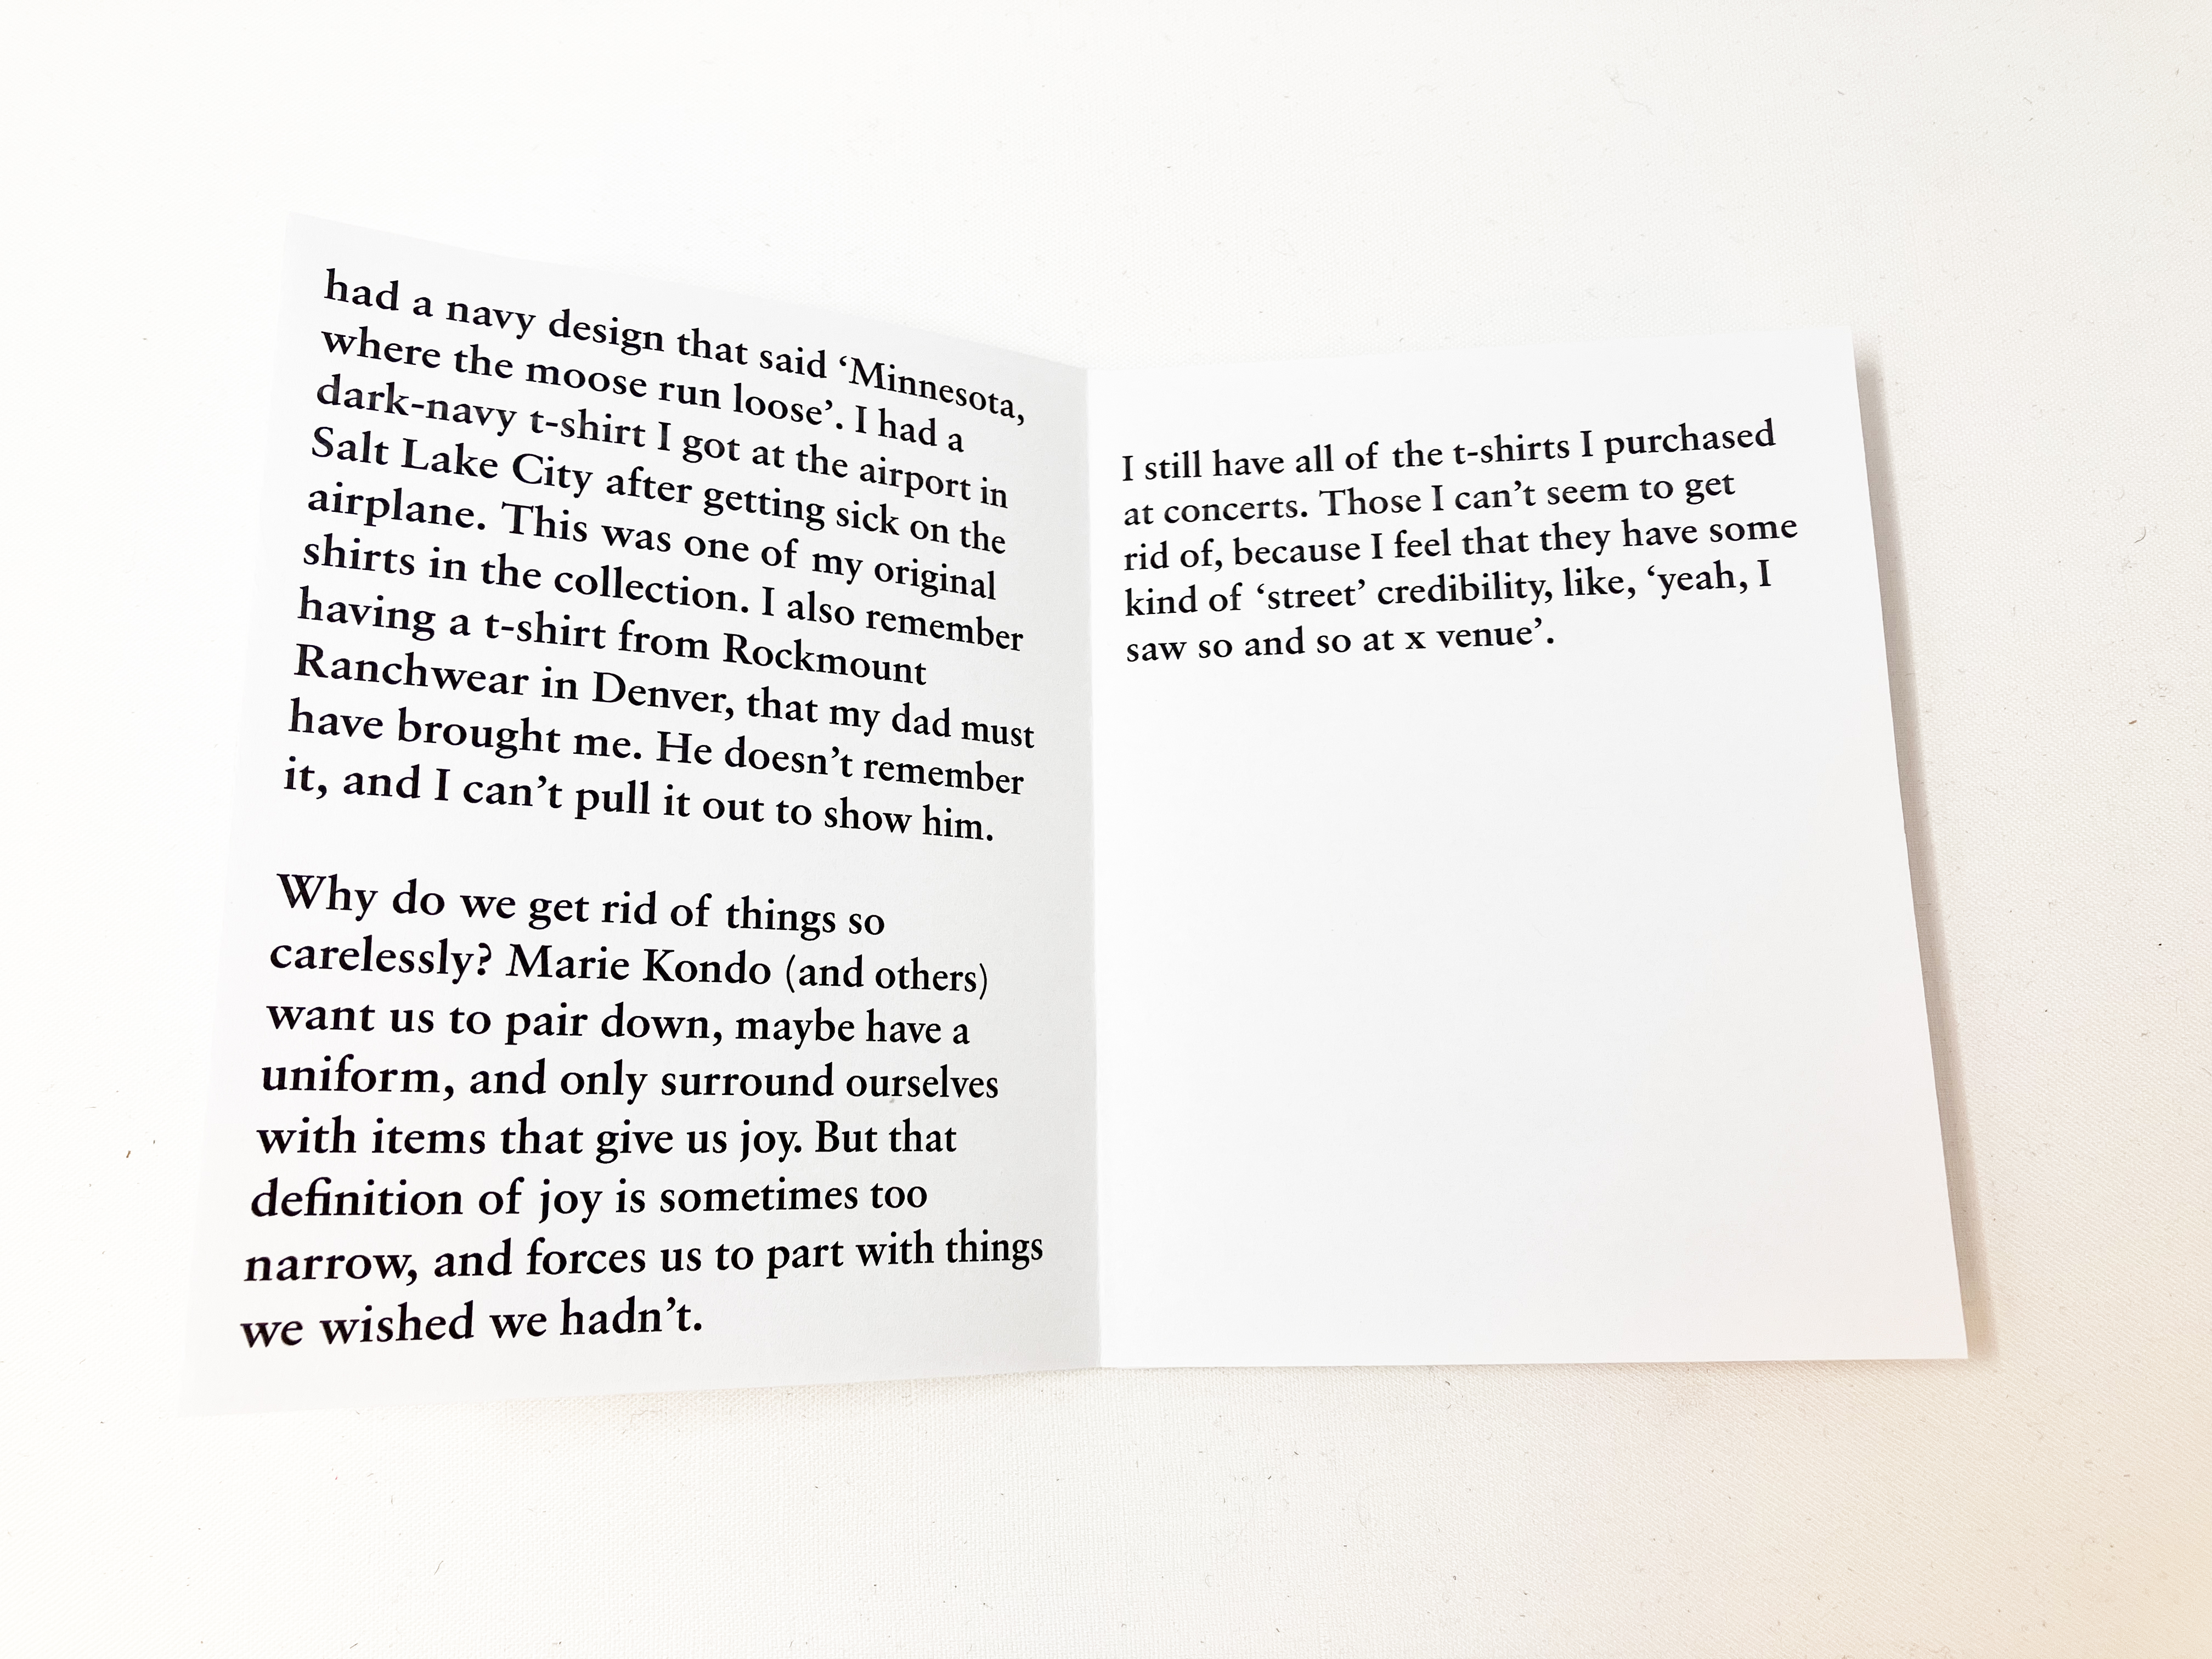 had a navy design that said ‘Minnesota,
where the moose run loose’. I had a
dark-navy t-shirt I got at the airport in
Salt Lake City after getting sick on the
airplane. This was one of my original
shirts in the collection. I also remember
having a t-shirt from Rockmount
Ranchwear in Denver, that my dad must
have brought me. He doesn’t remember
it, and I can’t pull it out to show him.
Why do we get rid of things so
carelessly? Marie Kondo (and others)
want us to pair down, maybe have a
uniform, and only surround ourselves
with items that give us joy. But that
definition of joy is sometimes too
narrow, and forces us to part with things
we wished we hadn’t.
I still have all of the t-shirts I purchased
at concerts. Those I can’t seem to get
rid of, because I feel that they have some
kind of ‘street’ credibility, like, ‘yeah, I
saw so and so at x venue’.